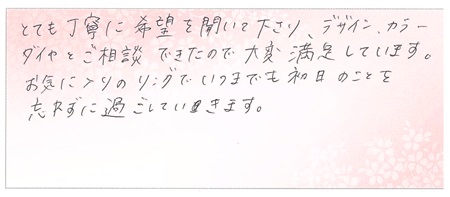 とても丁寧に希望を聞いて下さり、デザイン、カラー
ダイヤとご相談できたので大変満足しています。
お気に入りのリングでいつまでも初日のことを
忘れずに過ごしていきます。